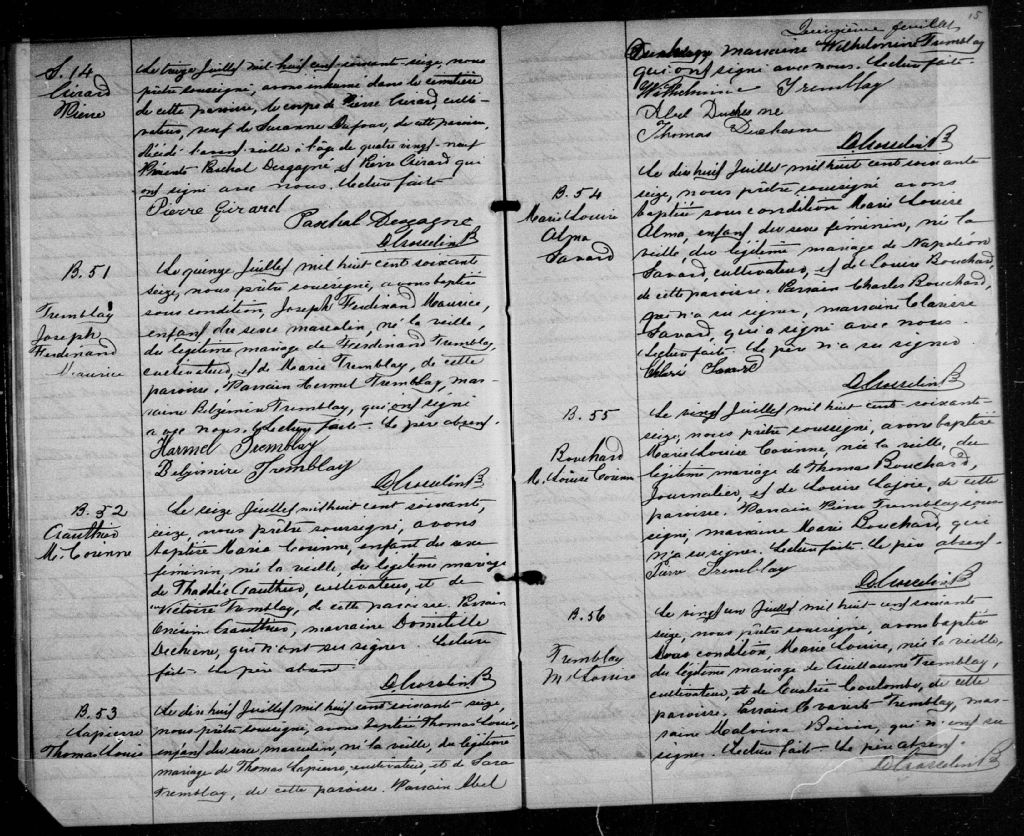 S. 14
Girard
Pierre
Le treize Juillet mil huit cent soixante seize, nous
prêtre soussigné, avons inhumé dans le cimetière
de cette paroisse, le corps de Pierre Girard culti-
vateur, veuf de Suzanne Dufour, de cette paroisse,
décédé l'avant veille à l'âge de quatre vingt neuf
Présents Paschal Desgagné et Pierre Girard qui
ont signé avec nous. Lecture faite
Pierre Girard
Paschal Desgagne
D. Gosselin P
B. 51
Tremblay
Joseph
Ferdinand
Maurice
Le quinze Juillet mil huit cent soixante
seize, nous prêtre soussigné, avons baptisé
sous condition, Joseph Ferdinand Maurice,
enfant du sexe masculin, né la veille,
du légitime mariage de Ferdinand Tremblay,
cultivateur, et de Marie Tremblay, de cette
paroisse. Parrain Hermel Tremblay, mar-
raine Belzémire Tremblay, qui ont signé
avec nous. Lecture faite. Le père absent.
Harmel Tremblay
Belzimire Tremblay
D. Gosselin P
B. 52
Gauthier
M. Corinne
Le seize Juillet mil huit cent soixante,
seize, nous prêtre soussigné, avons
baptisé Marie Corinne, enfant du sexe
feminin, née la veille du légitime mariage
de Thaddée Gauthier, cultivateur, et de
Victoire Tremblay, de cette paroisse. Parrain
Onésime Gauthier, marraine Domitilde
Dechene, qui n'ont su signer. Lecture
faite. Le père absent.
D. Gosselin P
B. 53
Lapierre
Thomas Louis
Le dix huit Juillet mil huit cent soixante seize,
nous prêtre soussigné, avons baptisé Thomas Louis,
enfant du sexe masculin, né la veille, du légitime
mariage de Thomas Lapierre, cultivateur, et de Sara
Tremblay, de cette paroisse. Parrain Abel
15
Quinzième feuillet
Duchesne marraine Wilhelmine Tremblay
qui ont signé avec nous. Lecture faite.
Wilhelmine Tremblay
Abel Duchesne
Thomas Duchesne
D. Gosselin P
B. 54
Marie Louise
Alma
Savard
Le dix huit Juillet mil huit cent soixante
seize, nous prêtre soussigné avons
baptisé sous condition Marie Louise
Alma, enfant du sexe feminin, né la
veille du légitime mariage de Napoléon
Savard, cultivateur, et de Louise Bouchard,
de cette paroisse. Parrain Charles Bouchard,
qui n'a su signer, marraine Clarisse
Savard, qui a signé avec nous.
Lecture faite. Le père n'a su signer
Savard
D. Gosselin P
B. 55
Bouchard
M. Louise Corinne
Le vingt Juillet mil huit cent soixante-
seize, nous prêtre soussigné, avons baptisé
Marie Louise Corinne, née la veille, du
légitime mariage de Thomas Bouchard,
Journalier, et de Louise Lajoie, de cette
paroisse. Parrain Pierre Tremblay
signé, marraine Marie Bouchard, qui
n'a su signer. Lecture faite. Le père absent.
Pierre Tremblay
D. Gosselin P
B. 56
Tremblay
M. Louise
Le vingt un Juillet mil huit-cent soixante
seize, nous prêtre soussigné, avons baptisé
sous condition Marie Louise, née la veille,
du légitime mariage de Guillaume Tremblay,
cultivateur, et de Eulalie Coulombe, de cette
paroisse. Parrain Evariste Tremblay, mar-
raine Malvina Boivin, qui n'ont su
signer. Lecture faite. Le père absent.
D. Gosselin P